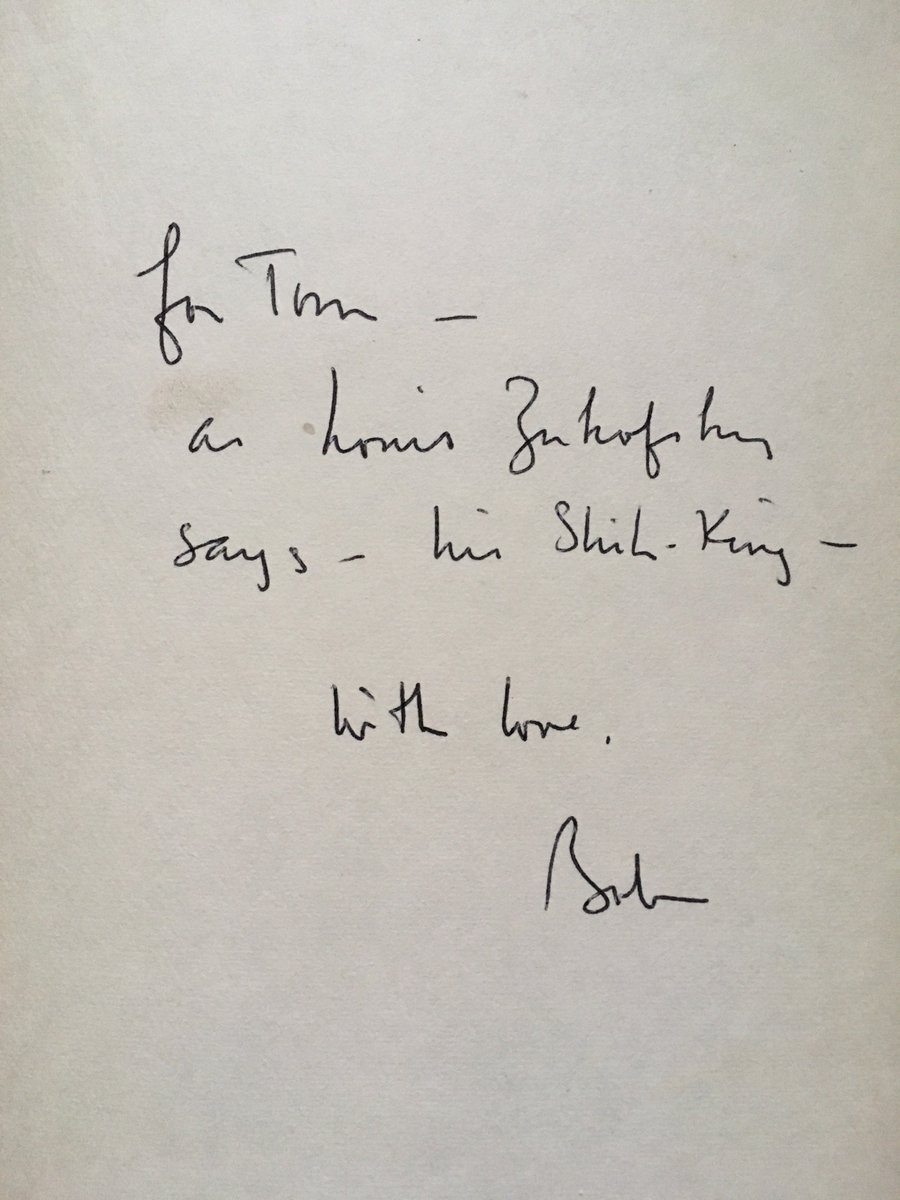 for Tom —
as Louis Zukofsky
says — his Shih-King —
with love,
Bob